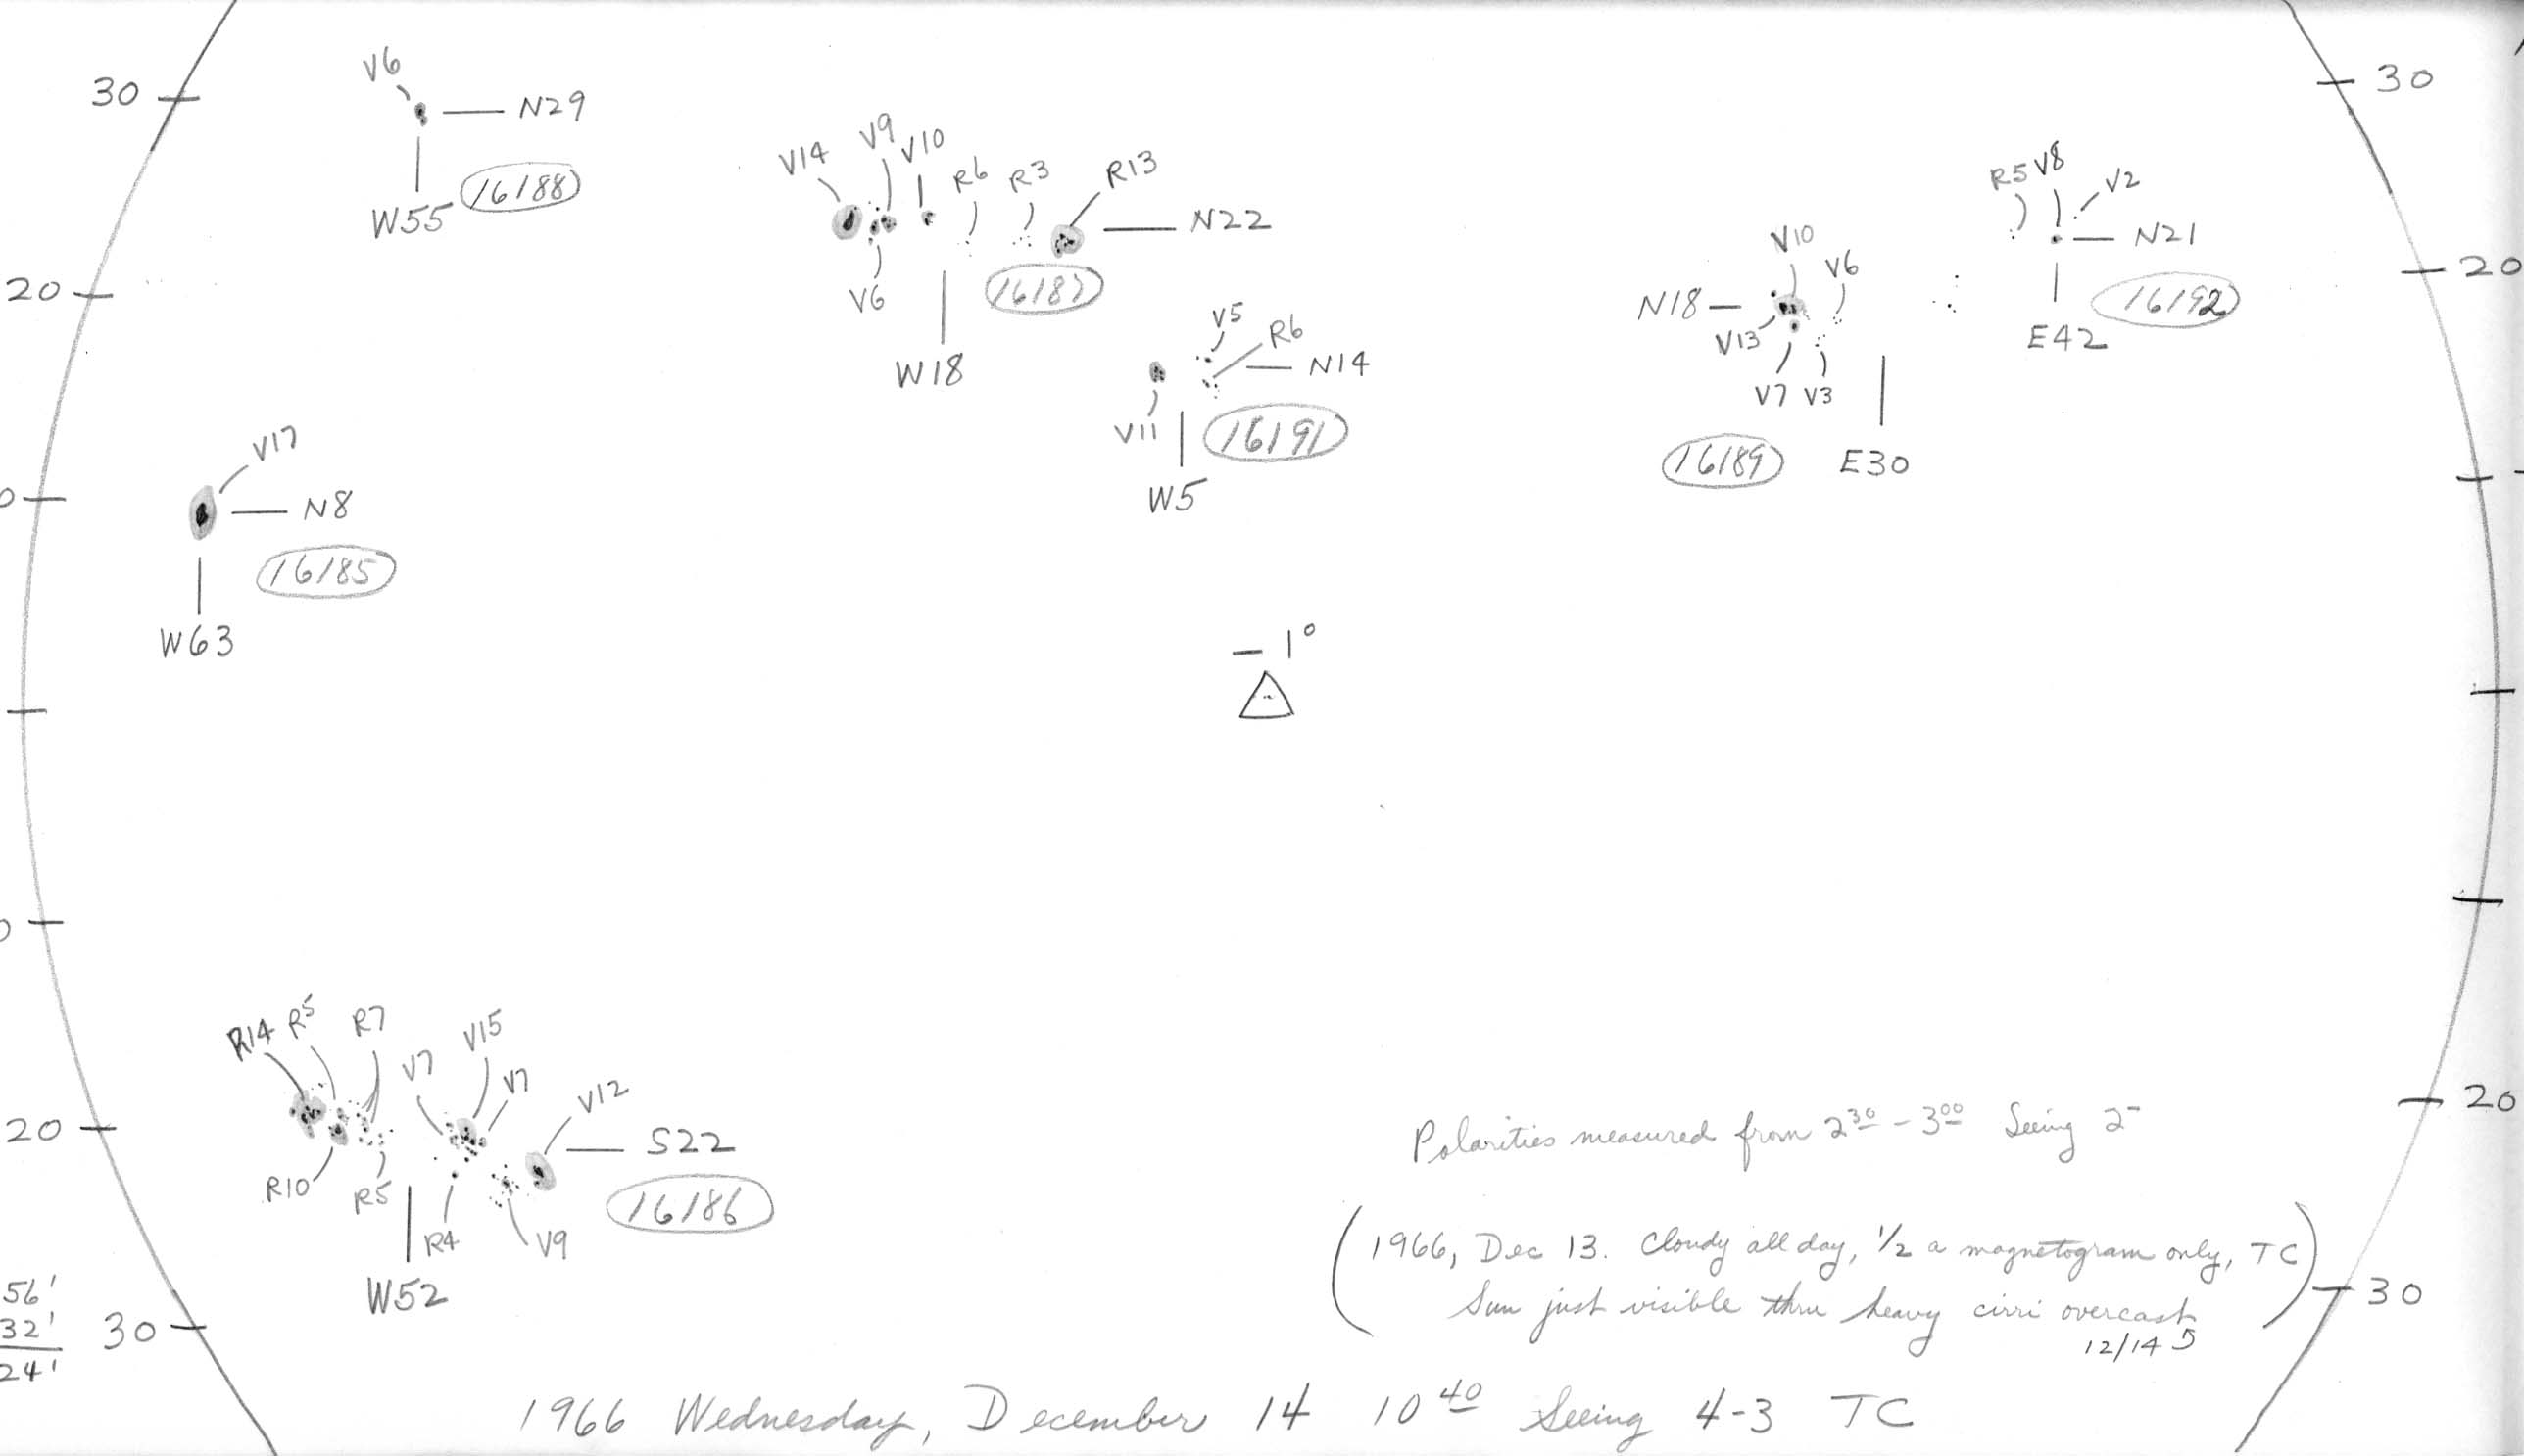 30
V6
N29
W55
16188
V14
V9
V10
R6
R3
R13
N22
V6
16187
W18
V5
R6
N14
V11
16191
W5
30
R5
V8
V2
N21
E42
16192
V10
V6
N18
V13
V7
V3
16189
E30
20
20
V17
N8
16185
W63
0
– 1°
0
R14
R5
R7
V7
V15
V7
V12
S22
16186
R10
R5
R4
V9
W52
20
20
Polarities measured from 2 30 – 3 00 Seeing 2-
(1966, Dec 13. Cloudy all day, 1/2 a magnetogram only, TC
Sun just visible thru heavy cirri overcast)
12/14
56'
32'
24'
30
30
1966 Wednesday, December 14 10 40 Seeing 4-3 TC